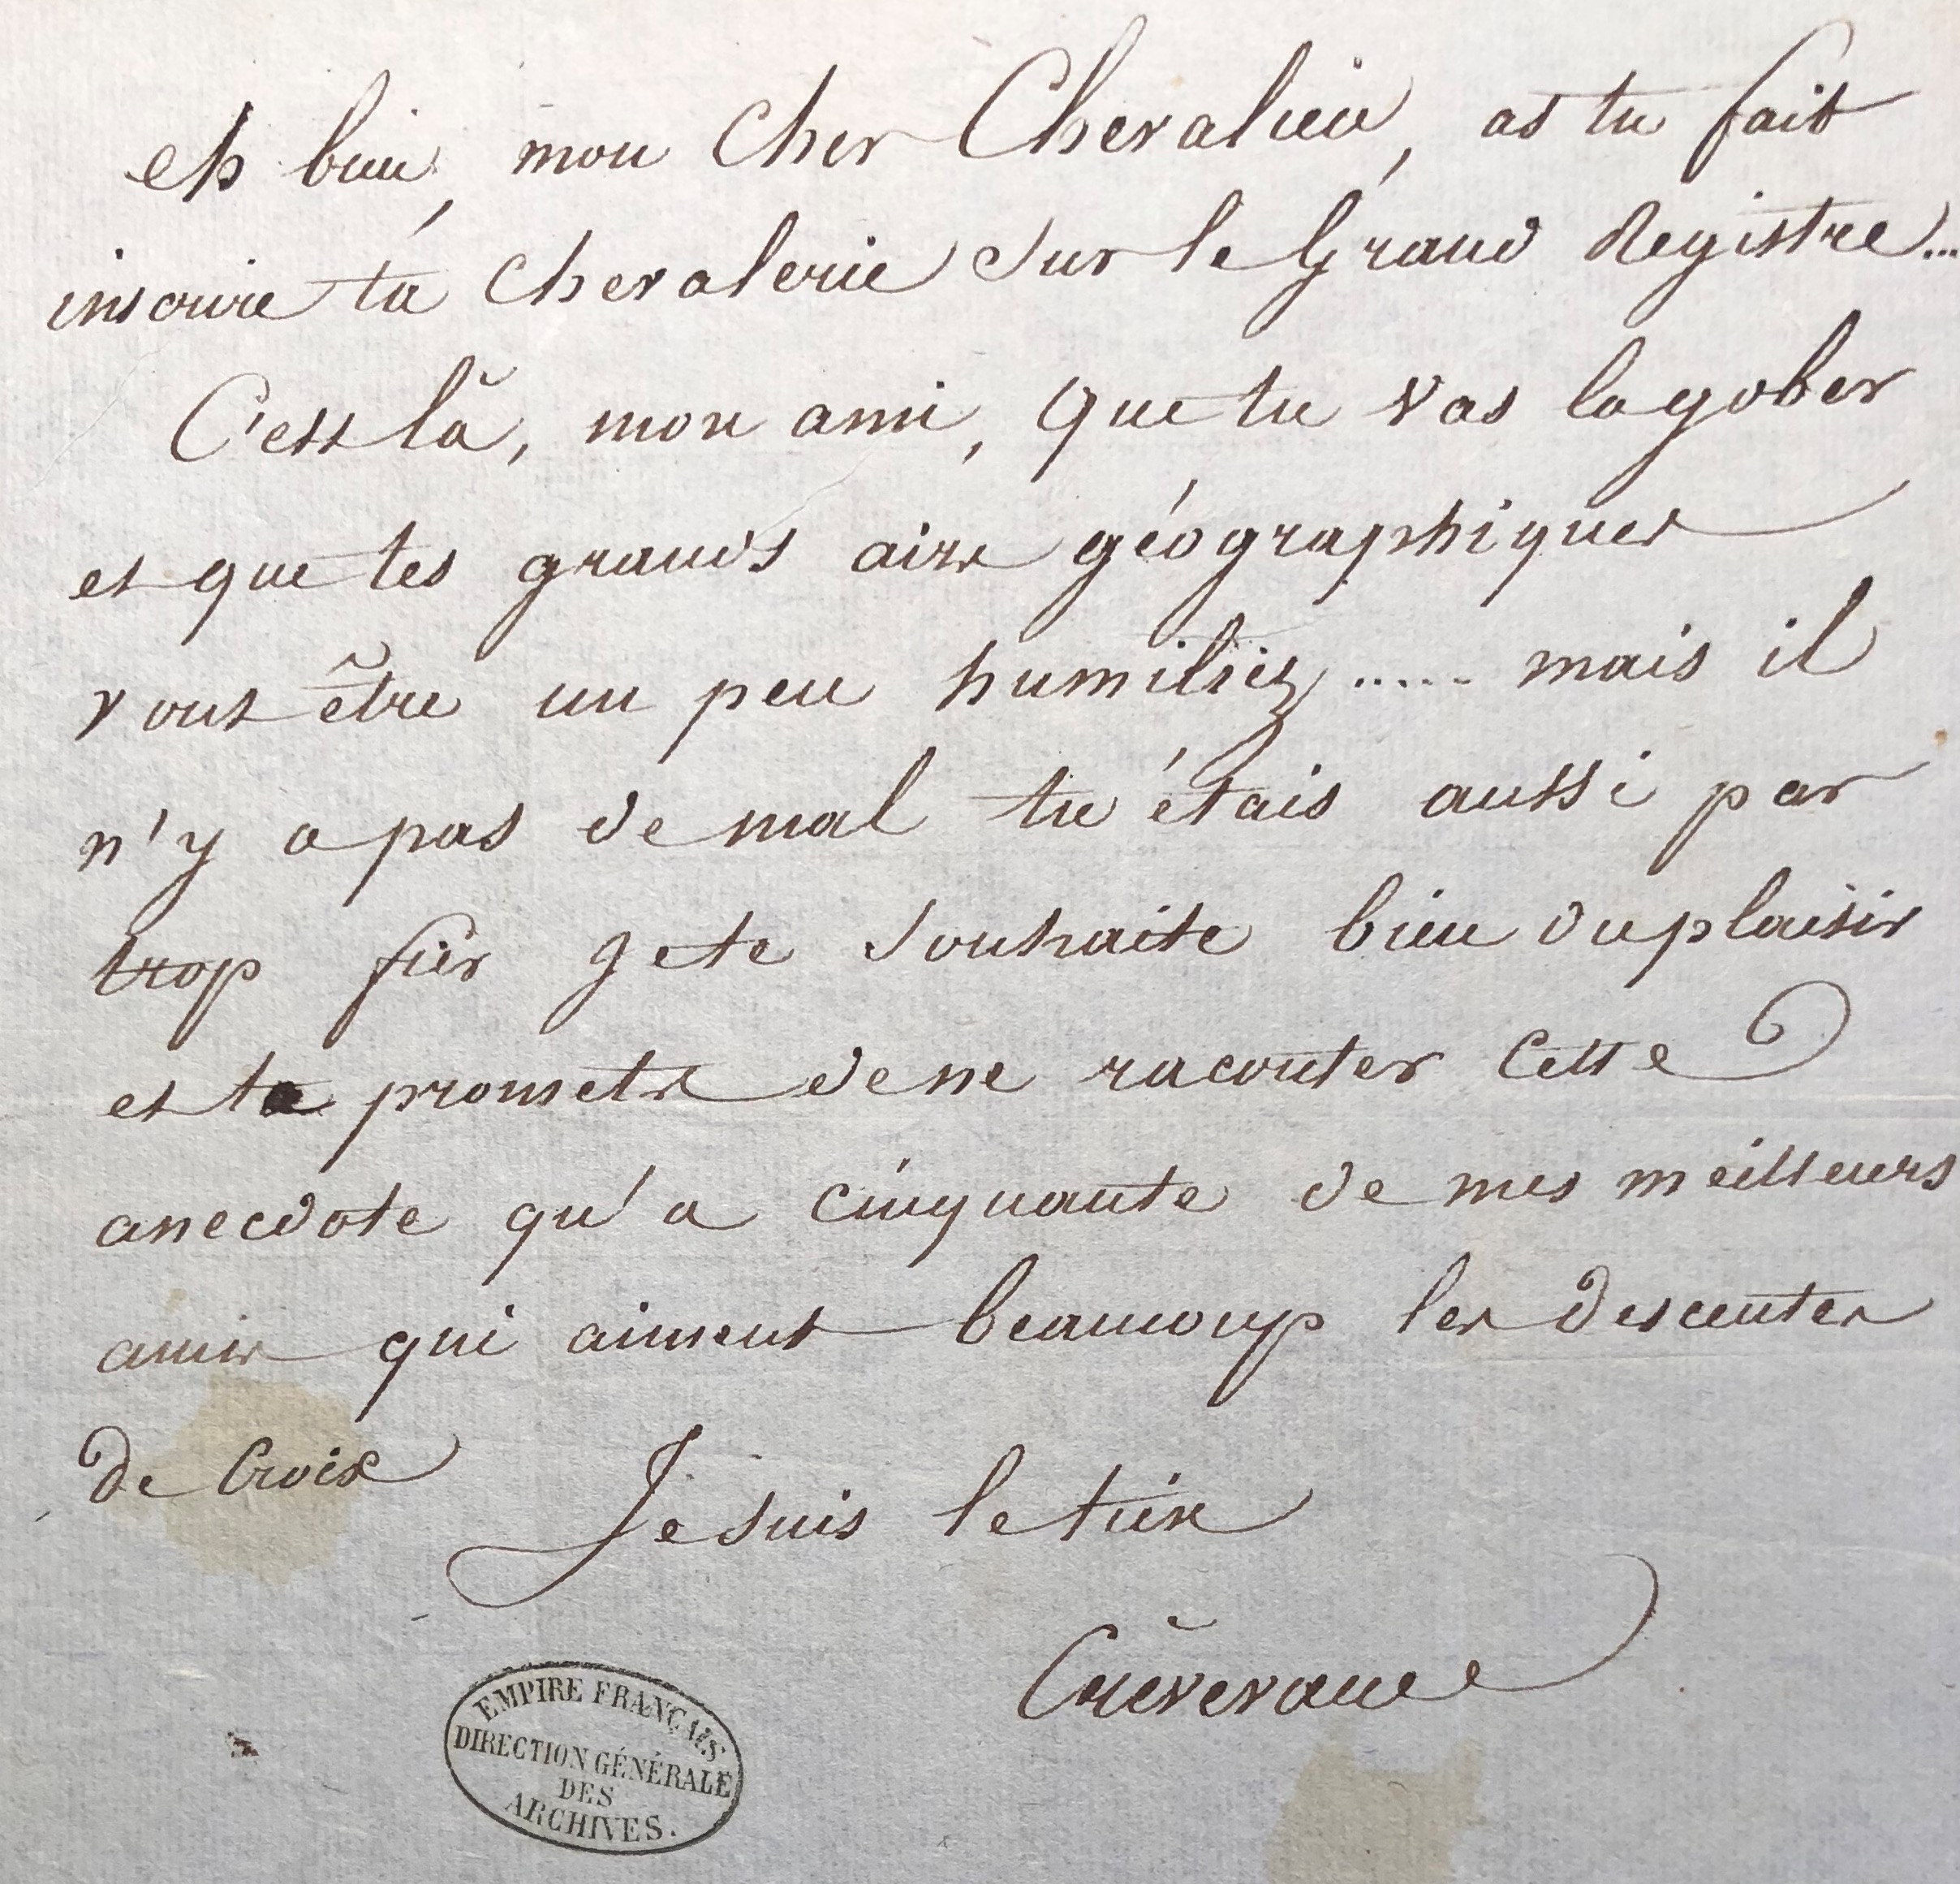 eh bien, mon Cher Chevalier, as tu fait
inscrire ta Chevalerie sur le Grand Registre...
C'est là, mon ami, que tu vas la gober
et que tes grands airs géographiques
vont être un peu humiliez ..... mais il
n'y a pas de mal tu étais aussi par
trop fier je te souhaite bien du plaisir
et te promets de ne raconter cette
anecdote qu'a cinquante de mes meilleurs
amis qui aiment beaucoup les descentes
de Croix
Je suis le tien
Crèvevance
EMPIRE FRANÇAIS
DIRECTION GÉNÉRALE
DES
ARCHIVES.